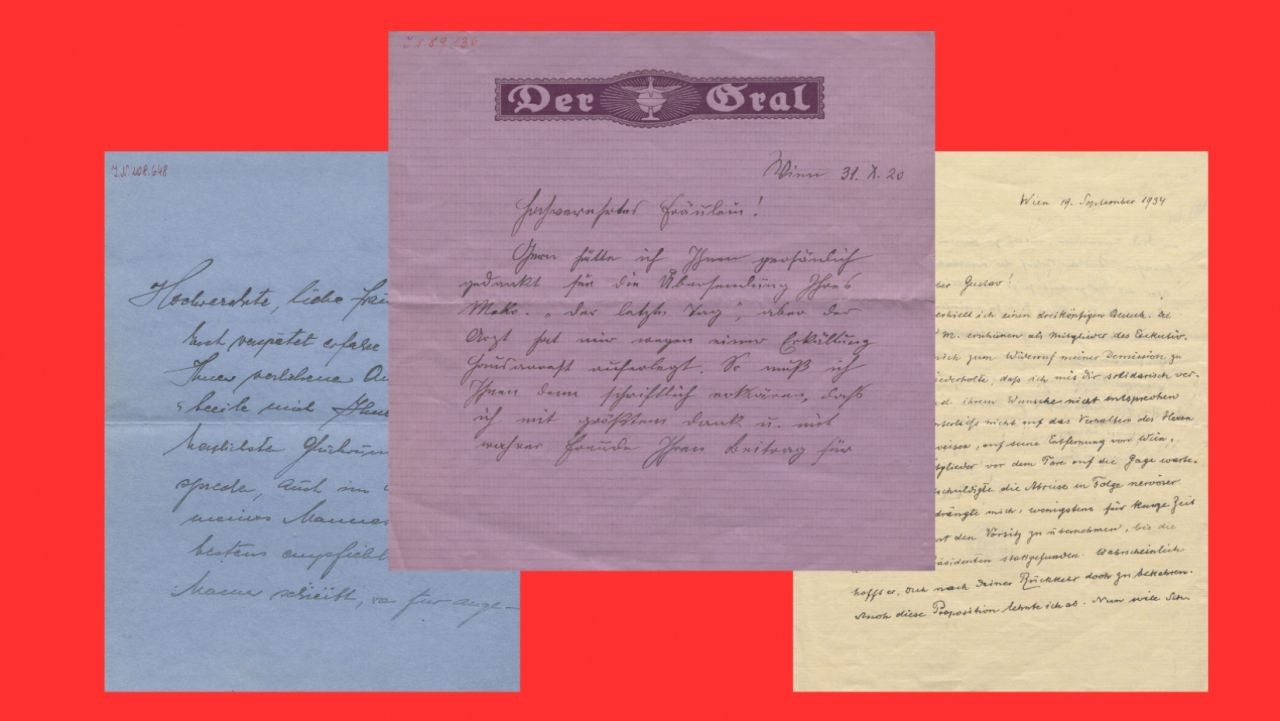 J.N. 108.648
Hochverehrte, liebe
Erst verspätet erfasse
Ihnen verliehene
beeile mich
herzlichste
spreche, auch im
meines Mannes
bestens empfiehlt
Mama schreibt, für ange-
J.N. 89.136
Der Gral
Wien 31. X. 20
Hochverehrtes Fräulein!
Gern hätte ich Ihnen persönlich
gedankt für die Übersendung Ihres
Mskr. „Der letzte Tag", aber der
Arzt hat mir wegen einer Erkältung
Hausarrest auferlegt. So muß ich
Ihnen denn schriftlich erklären, daß
ich mit größtem Dank u. mit
wahrer Freude Ihren Beitrag für
Wien 19. September 1934
Gustav!
erhielt ich einen dreiköpfigen Besuch.
M. erschienen als Mitglieder des Exekutiv.
mich zum Widerruf meiner Demission zu
wiederholte, dass ich mit dir solidarisch ver-
ihrem Wunsche nicht entsprechen
nicht auf das Verhalten des Herrn
auf seine Entfernung von Wien,
Mitglieder vor dem Tore auf die Gage warte-
entschuldigte die Abreise in Folge nervöser
drängte mich, wenigstens für kurze Zeit
den Vorsitz zu übernehmen, bis die
Präsidenten stattgefunden. Wahrscheinlich
hofft er, Dich nach Deiner Rückkehr doch zu bekehren.
Auch diese Proposition lehnte ich ab. Nun will